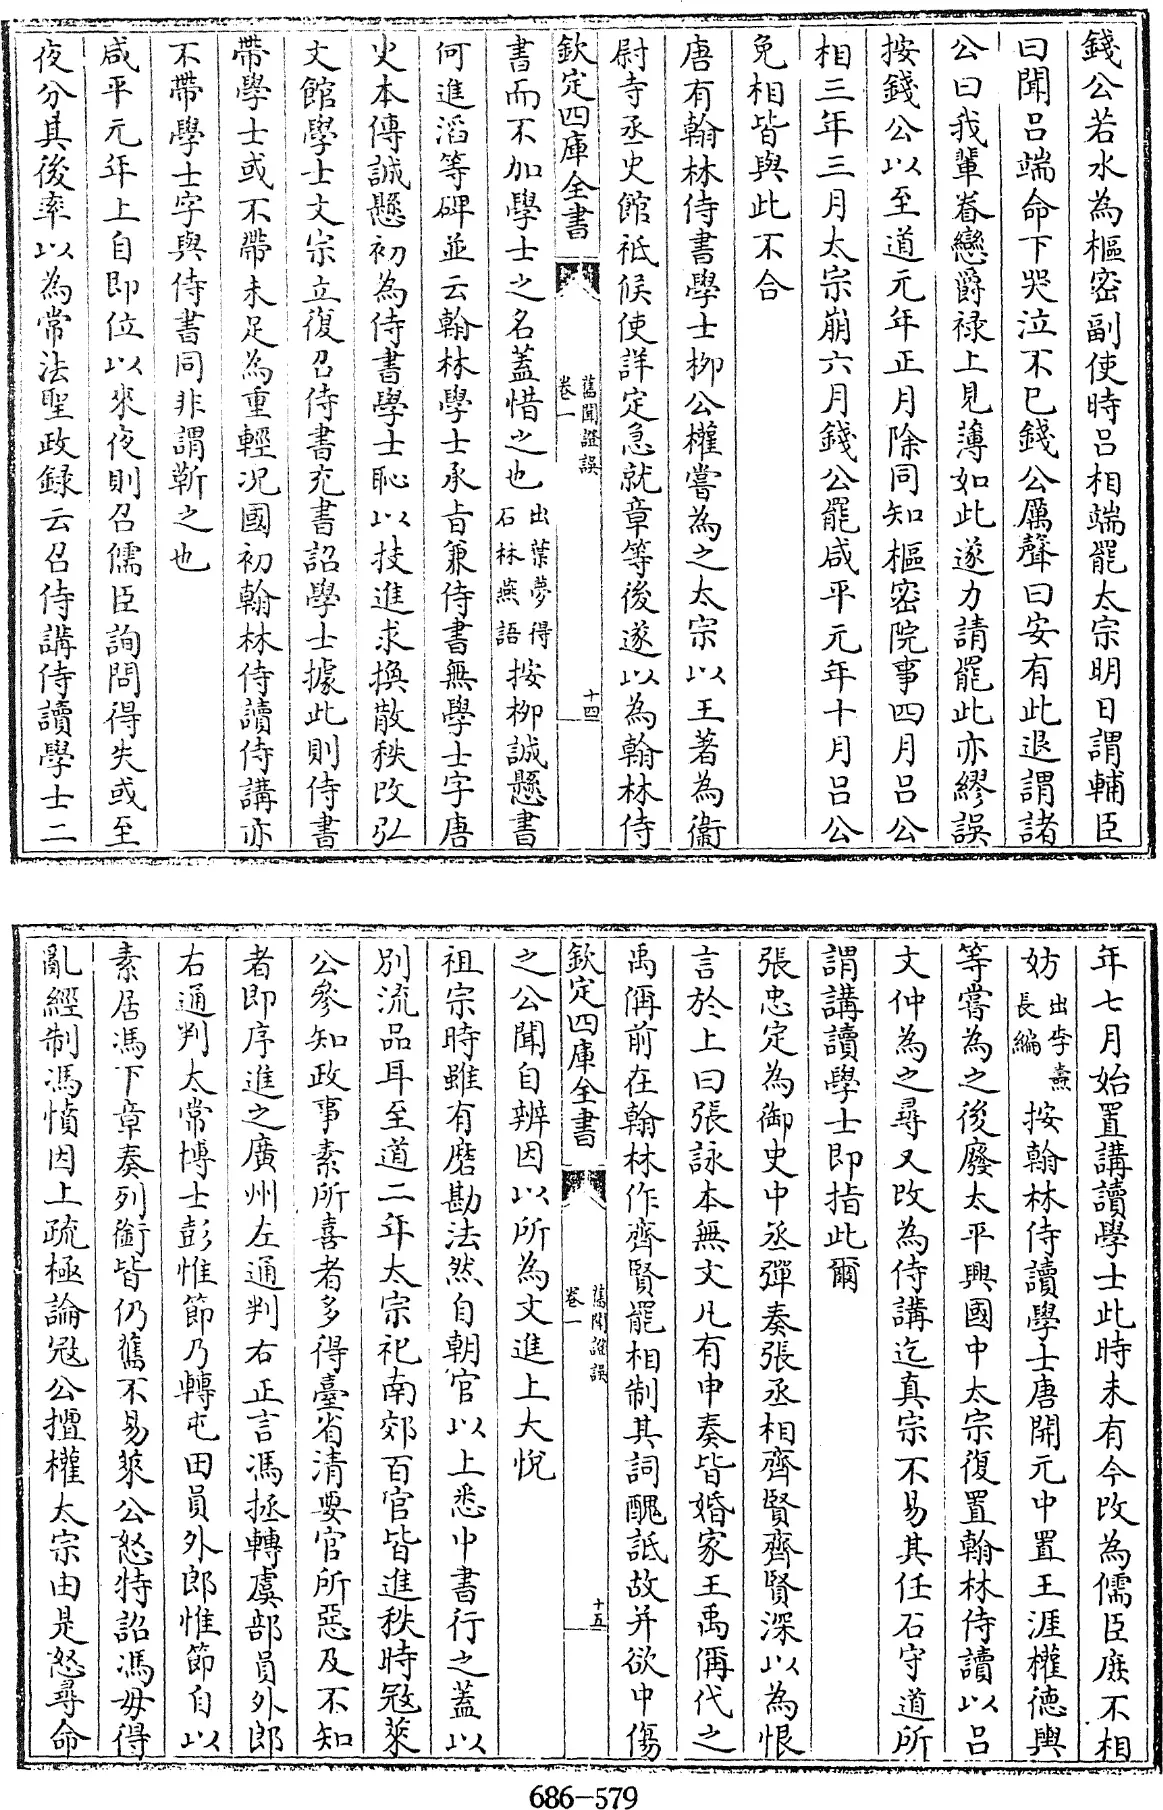 錢公若水為樞密副使時吕相端罷太宗明日謂輔臣
曰聞吕端命下哭泣不已錢公厲聲曰安有此退謂諸
公曰我輩眷戀爵禄上見薄如此遂力請罷此亦繆誤
按錢公以至道元年正月除同知樞密院事四月吕公
相三年三月太宗崩六月錢公罷咸平元年十月吕公
免相皆與此不合
唐有翰林侍書學士柳公權嘗為之太宗以王著為衞
尉寺丞史館祗候使詳定急就章等後遂以為翰林侍
欽定四庫全書
舊聞證誤
卷一
十四
書而不加學士之名蓋惜之也出葉夢得石林燕語按柳誠懸書
何進滔等碑並云翰林學士承旨兼侍書無學士字唐
火本傳誠懸初為侍書學士恥以技進求換散秩改弘
文館學士文宗立復召侍書充書詔學士據此則侍書
帶學士或不帶未足為重輕况國初翰林侍讀侍講亦
不帶學士字與侍書同非謂靳之也
咸平元年上自即位以來夜則召儒臣詢問得失或至
夜分其後率以為常法聖政録云召侍講侍讀學士二
年七月始置講讀學士此時未有今改為儒臣庶不相
妨出李燾長編按翰林侍讀學士唐開元中置王涯權德輿
等嘗為之後廢太平興國中太宗復置翰林侍讀以吕
文仲為之尋又改為侍講迄真宗不易其任石守道所
謂講讀學士即指此爾
張忠定為御史中丞彈奏張丞相齊賢齊賢深以為恨
言於上曰張詠本無文凡有申奏皆婚家王禹偁代之
禹偁前在翰林作齊賢罷相制其詞醜詆故并欲中傷
欽定四庫全書
舊聞證誤
卷一
十五
之公聞自辨因以所為文進上大悅
祖宗時雖有磨勘法然自朝官以上悉中書行之蓋以
別流品耳至道二年太宗祀南郊百官皆進秩時冦萊
公參知政事素所喜者多得臺省清要官所惡及不知
者即序進之廣州左通判右正言馮拯轉虞部員外郎
右通判太常博士彭惟節乃轉屯田員外郎惟節自以
素居馮下章奏列銜皆仍舊不易萊公怒特詔馮毋得
亂經制馮憤因上疏極論冦公擅權太宗由是怒尋命
686-579